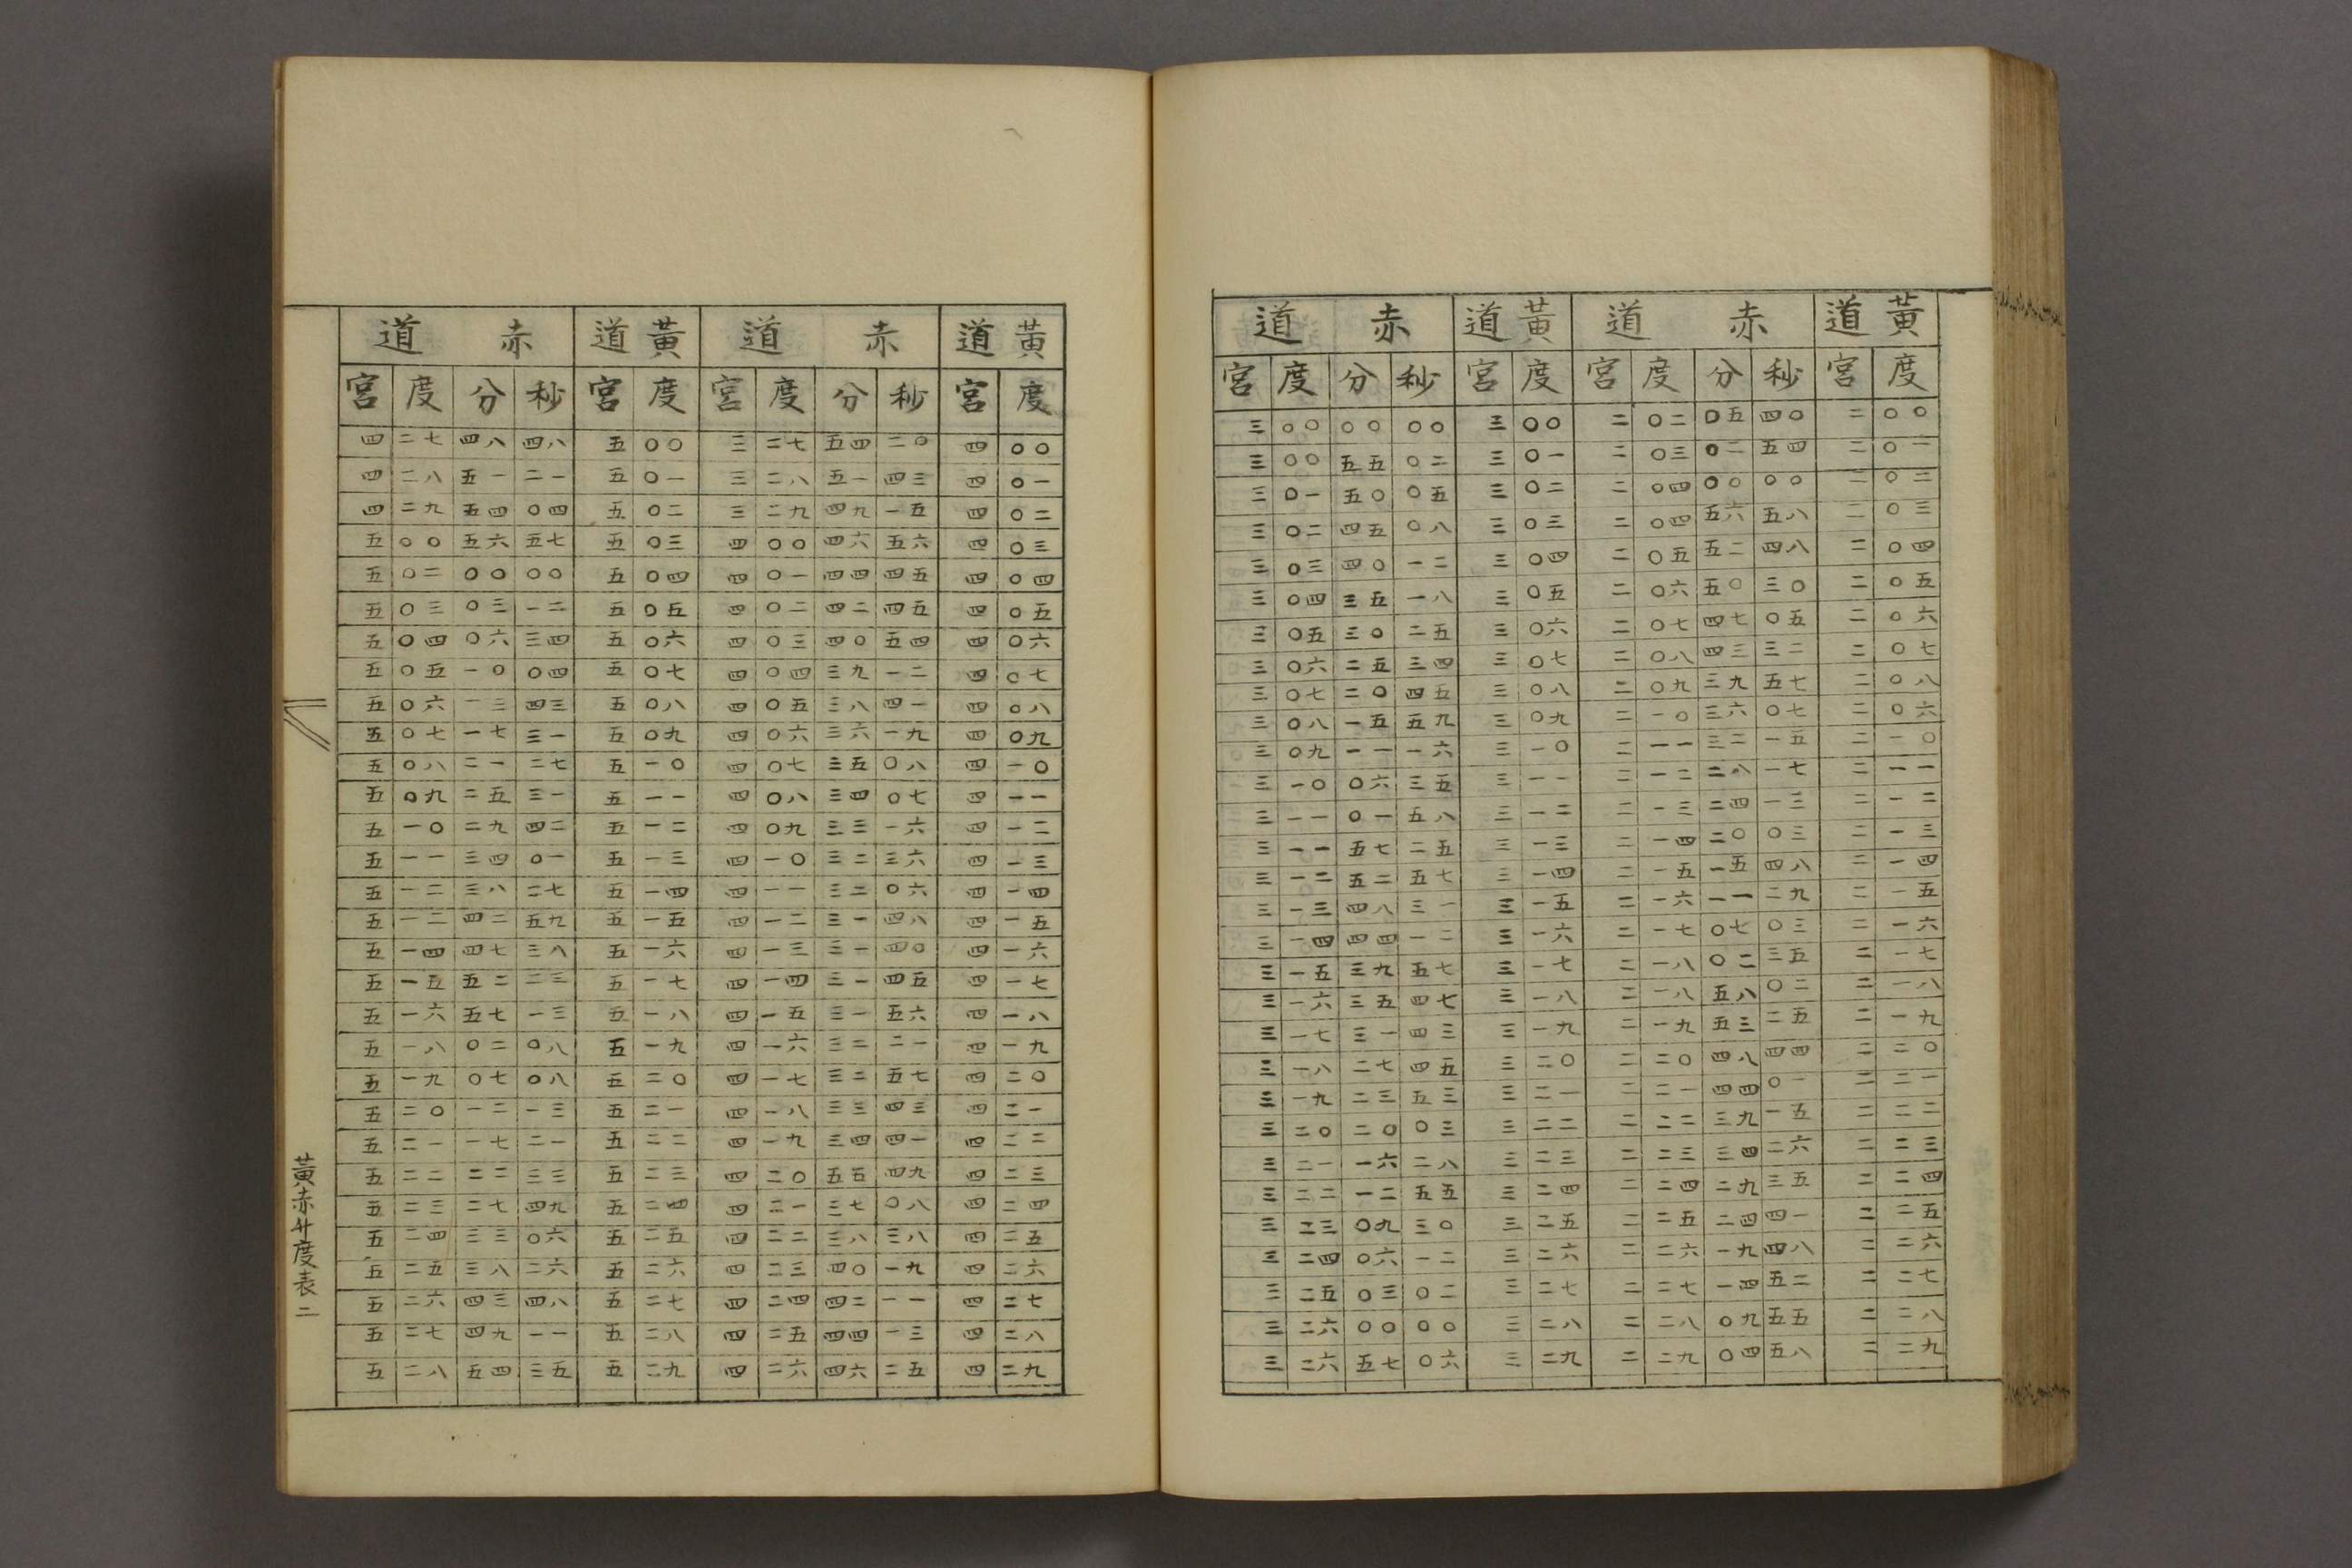 黃道 赤道 黃道 赤道
宮 度 分 秒 宮 度 宮 度 分 秒 宮 度
三 〇〇 〇〇 〇〇 三 〇〇 二 〇二 〇五 四〇 二 〇〇
三 〇〇 五五 〇二 三 〇一 二 〇三 〇二 五四 二 〇一
三 〇一 五〇 〇五 三 〇二 二 〇四 〇〇 〇〇 二 〇二
三 〇二 四五 〇八 三 〇三 二 〇四 五六 五八 二 〇三
三 〇三 四〇 一二 三 〇四 二 〇五 五二 四八 二 〇四
三 〇四 三五 一八 三 〇五 二 〇六 五〇 三〇 二 〇五
三 〇五 三〇 二五 三 〇六 二 〇七 四七 〇五 二 〇六
三 〇六 二五 三四 三 〇七 二 〇八 四三 三二 二 〇七
三 〇七 二〇 四五 三 〇八 二 〇九 三九 五七 二 〇八
三 〇八 一五 五九 三 〇九 二 一〇 三六 〇七 二 〇六
三 〇九 一一 一六 三 一〇 二 一一 三二 一五 二 一〇
三 一〇 〇六 三五 三 一一 二 一二 二八 一七 二 一一
三 一一 〇一 五八 三 一二 二 一三 二四 一三 二 一二
三 一一 五七 二五 三 一三 二 一四 二〇 〇三 二 一三
三 一二 五二 五七 三 一四 二 一五 一五 四八 二 一四
三 一三 四八 三一 三 一五 二 一六 一一 二九 二 一五
三 一四 四四 一二 三 一六 二 一七 〇七 〇三 二 一六
三 一五 三九 五七 三 一七 二 一八 〇二 三五 二 一七
三 一六 三五 四七 三 一八 二 一八 五八 〇二 二 一八
三 一七 三一 四三 三 一九 二 一九 五三 二五 二 一九
三 一八 二七 四五 三 二〇 二 二〇 四八 四四 二 二〇
三 一九 二三 五三 三 二一 二 二一 四四 〇一 二 二一
三 二〇 二〇 〇三 三 二二 二 二二 三九 一五 二 二二
三 二一 一六 二八 三 二三 二 二三 三四 二六 二 二三
三 二二 一二 五五 三 二四 二 二四 二九 三五 二 二四
三 二三 〇九 三〇 三 二五 二 二五 二四 四一 二 二五
三 二四 〇六 一二 三 二六 二 二六 一九 四八 二 二六
三 二五 〇三 〇二 三 二七 二 二七 一四 五二 二 二七
三 二六 〇〇 〇〇 三 二八 二 二八 〇九 五五 二 二八
三 二六 五七 〇六 三 二九 二 二九 〇四 五八 二 二九
黃道 赤道 黃道 赤道
宮 度 分 秒 宮 度 宮 度 分 秒 宮 度
四 二七 四八 四八 五 〇〇 三 二七 五四 二〇 四 〇〇
四 二八 五一 二一 五 〇一 三 二八 五一 四三 四 〇一
四 二九 五四 〇四 五 〇二 三 二九 四九 一五 四 〇二
五 〇〇 五六 五七 五 〇三 四 〇〇 四六 五六 四 〇三
五 〇二 〇〇 〇〇 五 〇四 四 〇一 四四 四五 四 〇四
五 〇三 〇三 一二 五 〇五 四 〇二 四二 四五 四 〇五
五 〇四 〇六 三四 五 〇六 四 〇三 四〇 五四 四 〇六
五 〇五 一〇 〇四 五 〇七 四 〇四 三九 一二 四 〇七
五 〇六 一三 四三 五 〇八 四 〇五 三八 四一 四 〇八
五 〇七 一七 三一 五 〇九 四 〇六 三六 一九 四 〇九
五 〇八 二一 二七 五 一〇 四 〇七 三五 〇八 四 一〇
五 〇九 二五 三一 五 一一 四 〇八 三四 〇七 四 一一
五 一〇 二九 四二 五 一二 四 〇九 三三 一六 四 一二
五 一一 三四 〇一 五 一三 四 一〇 三二 三六 四 一三
五 一二 三八 二七 五 一四 四 一一 三二 〇六 四 一四
五 一二 四二 五九 五 一五 四 一二 三一 四八 四 一五
五 一四 四七 三八 五 一六 四 一三 三一 四〇 四 一六
五 一五 五二 二三 五 一七 四 一四 三一 四五 四 一七
五 一六 五七 一三 五 一八 四 一五 三一 五六 四 一八
五 一八 〇二 〇八 五 一九 四 一六 三二 二一 四 一九
五 一九 〇七 〇八 五 二〇 四 一七 三二 五七 四 二〇
五 二〇 一二 一三 五 二一 四 一八 三三 四三 四 二一
五 二一 一七 二一 五 二二 四 一九 三四 四一 四 二二
五 二二 二二 三三 五 二三 四 二〇 五五 四九 四 二三
五 二三 二七 四九 五 二四 四 二一 三七 〇八 四 二四
五 二四 三三 〇六 五 二五 四 二二 三八 三八 四 二五
五 二五 三八 二六 五 二六 四 二三 四〇 一九 四 二六
五 二六 四三 四八 五 二七 四 二四 四二 一一 四 二七
五 二七 四九 一一 五 二八 四 二五 四四 一三 四 二八
五 二八 五四 三五 五 二九 四 二六 四六 二五 四 二九
黃赤升度表 二